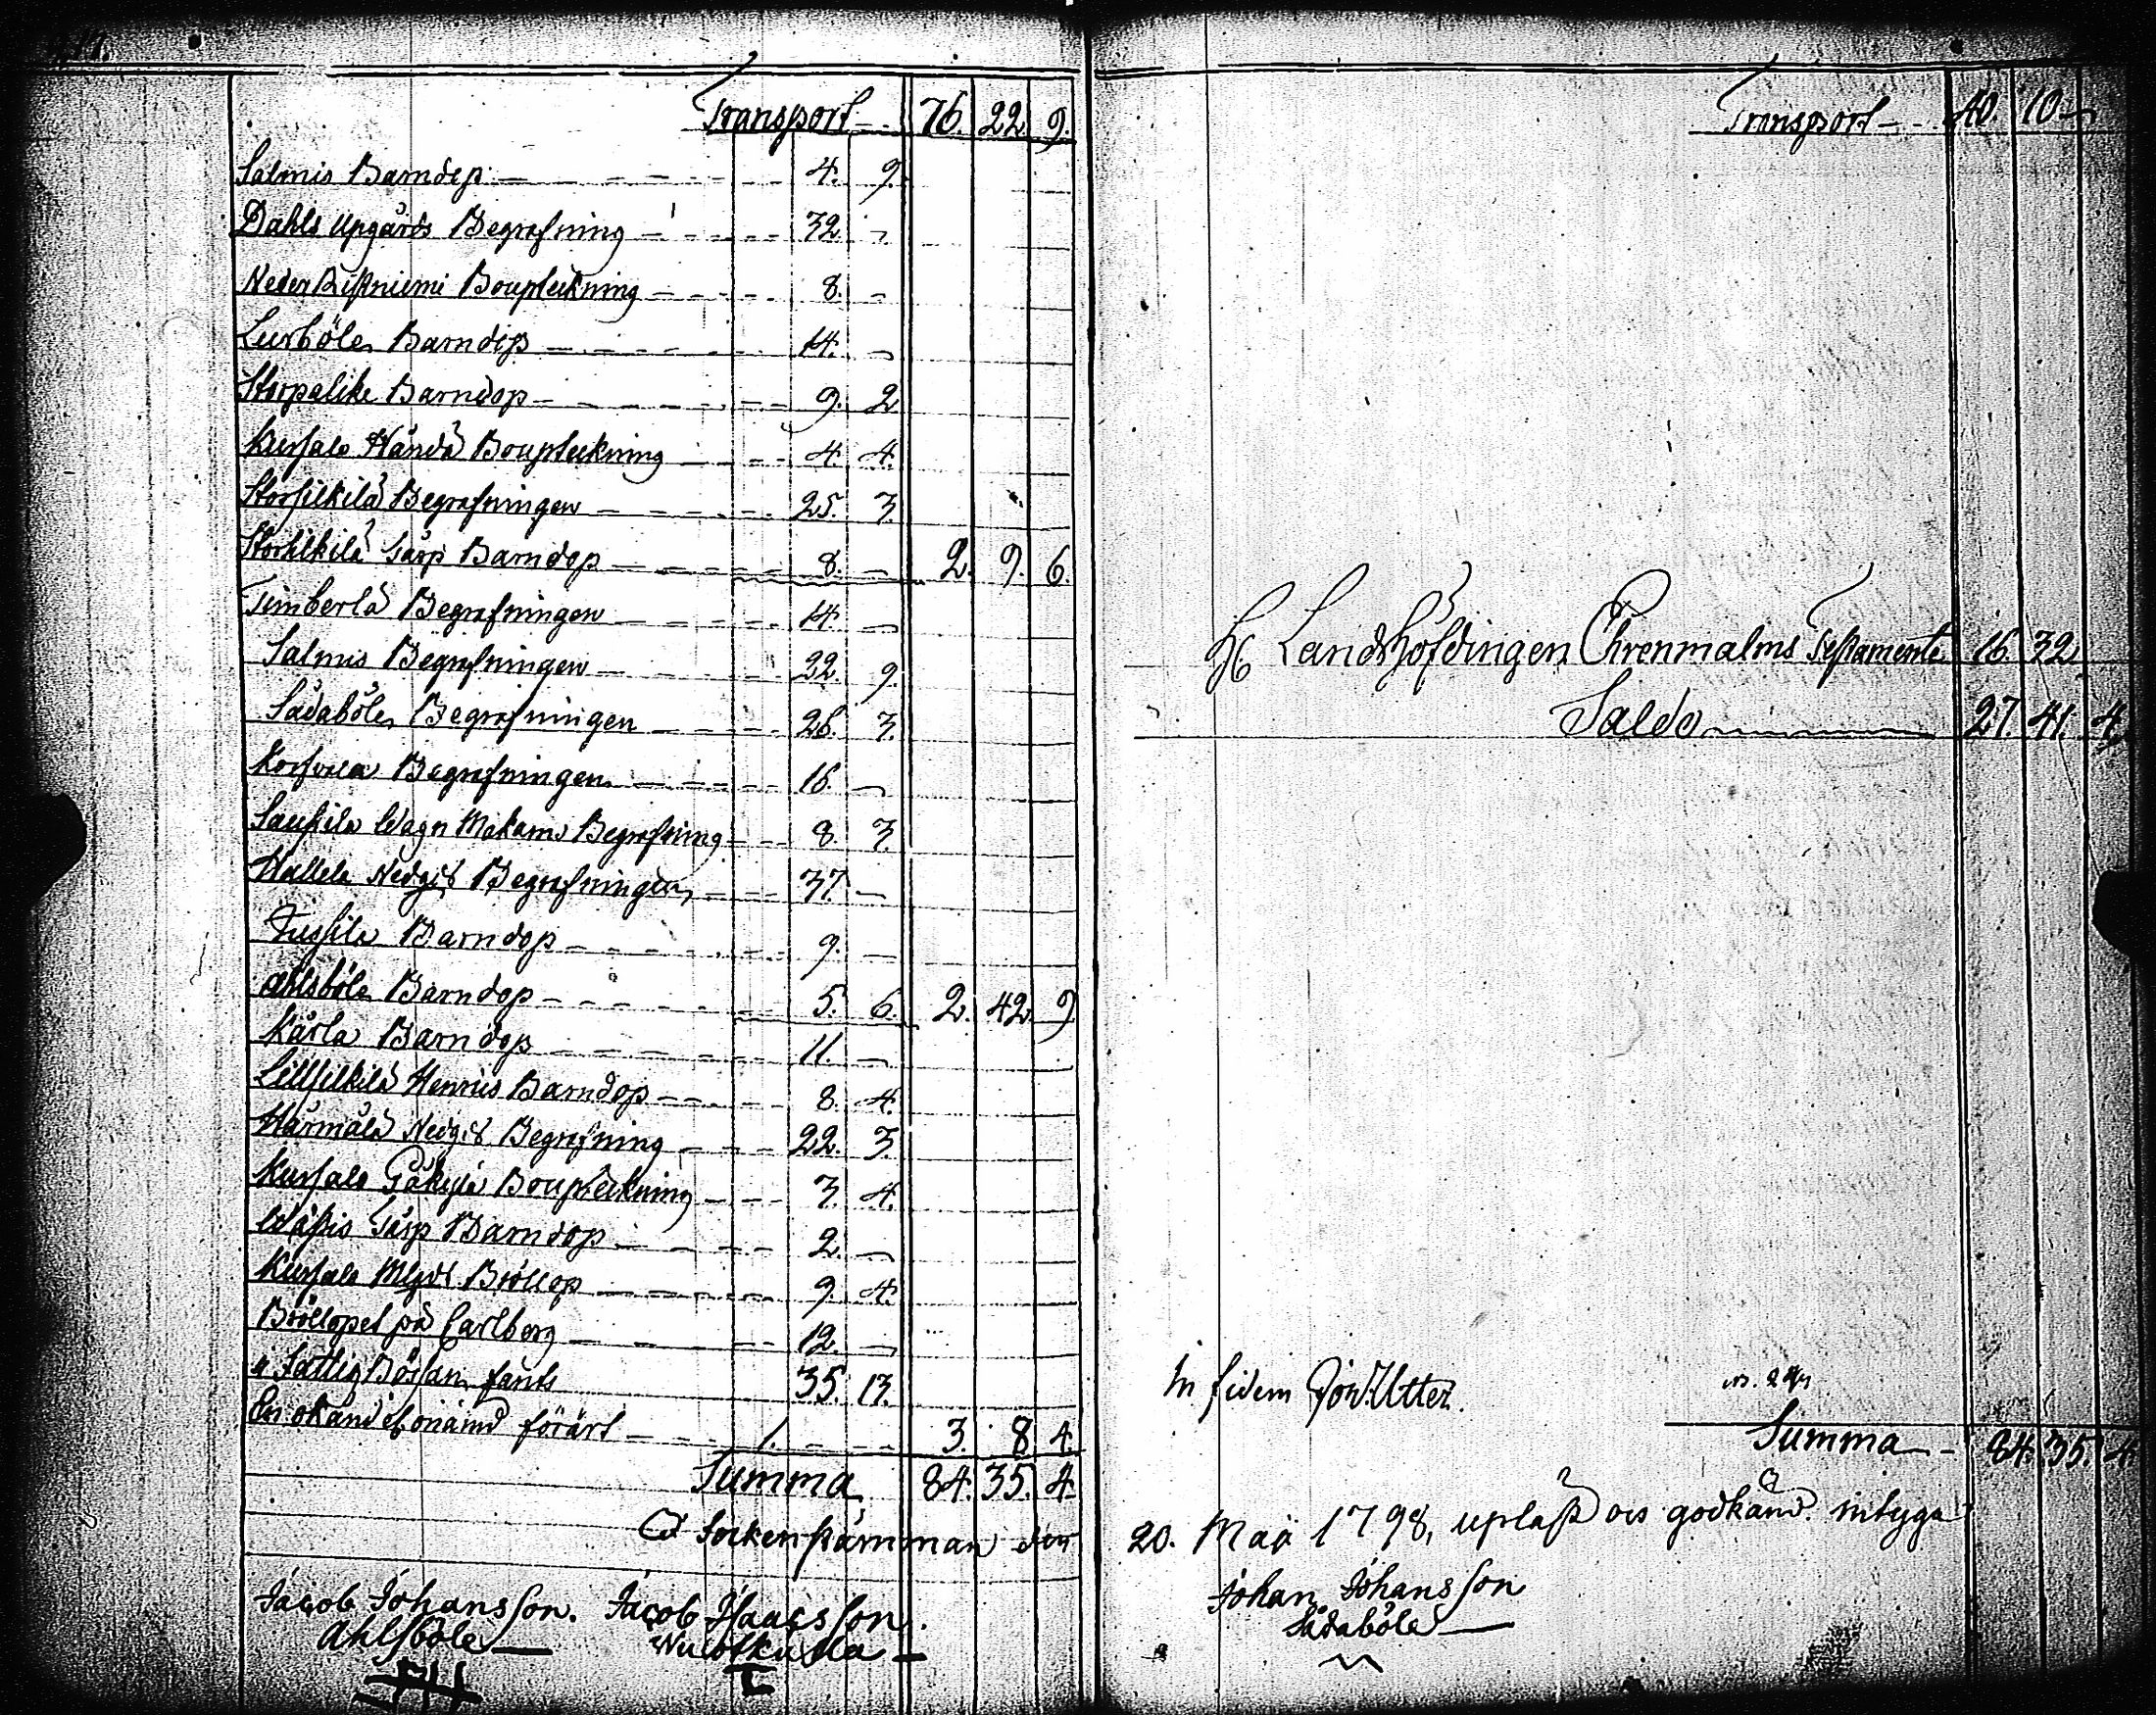 Transport 76. 22. 9.
Salmis Barndop 4. 9.
Dahls Upgårds Begrafning 32. -
Neder Bistniemi Bouptekning 8. -
Lursböle Barndop 14. -
Storpalike Barndop 9. 2
Kursalo Händä Bouptekning 4. 4.
Storsilkilä Begrafningen 25. 3.
Storsilkilä Barndop 8. - 2. 9. 6.
Timberlä Begrafningen 14. -
Salmis Begrafningen 22. 9.
Sådaböle Begrafningen 26. 3.
Begrafningen 16. -
Wagn Makans Begrafning 8. 3.
Hallela Nedgds Begrafningen 37. -
Jussila Barndop 9. -
Ahlsböle Barndop 5. 6. 2. 42. 9
Kärla Barndop 11. -
Lillsilkilä Henrics Barndop 8. 4.
Härmälä Nedgds Begrafning 22. 3.
Kursalo Bouptekning 3. 4.
Barndop 2. -
Kursalo Mlgds Bröllop 9. 4.
Bröllopet på Carlberg 12. -
u Fattig Bössan fants 35. 13.
En okänd onämd förärt 1. - - 3. 8. 4.
Summa 84. 35. 4.
Sockenstämman den
Jacob Johansson. Jacob Isaacsson.
Ahlsböle
Transport 40. 10 -
Landshöfdingen Ehrenmalms Testamente 16. 32
Saldo 27. 41. 4.
In fidem Utter.
Summa 84. 35. 4
20. Maji 1798, uplast och godkänd. intyga
Johan Johansson
Sådaböle